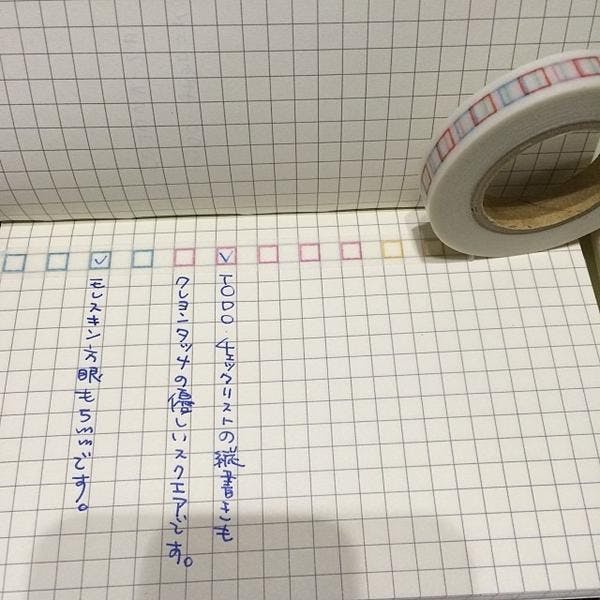 TODO・チェックリストの縦書きも
クレヨンタッチの優しいスクエアです。
モレスキン方眼も5mmです。